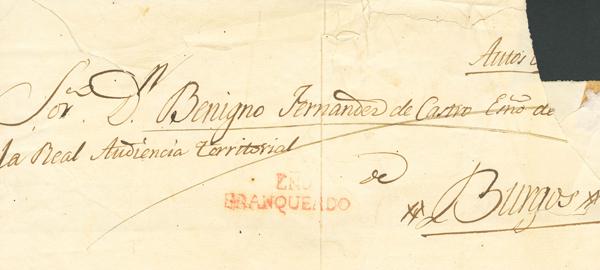 Autos
Sor. Dn. Benigno Fernandez de Castro Esno de
la Real Audiencia territorial
de
Burgos
FRANQUEADO